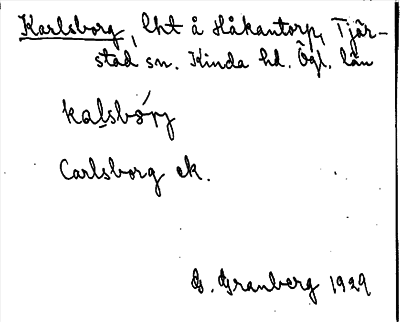 Karlsborg, lht å Håkantorp, Tjär-
stad sn. Kinda hd. Ögl. län
kalsbórj
Carlsborg ek.
G. Granberg 1929